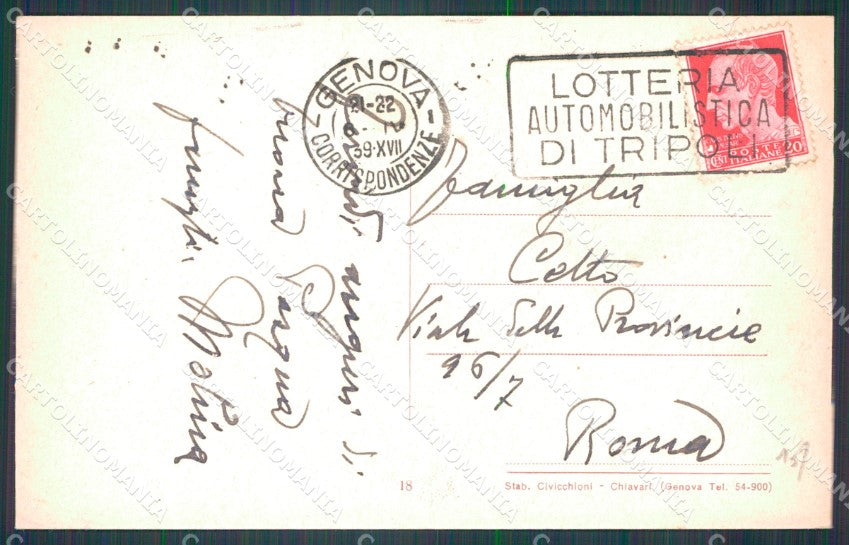 GENOVA
21-22
39·XVII
CORRISPONDENZE
LOTTERIA
AUTOMOBILISTICA
DI TRIPOLI
POSTE
CENT. ITALIANE 20
auguri di
buona Pasqua
famiglia Molina
Famiglia
Cetto
Viale delle Provincie
96/7
Roma
18
Stab. Civicchioni - Chiavari. (Genova Tel. 54-900)
CARTOLINOMANIA